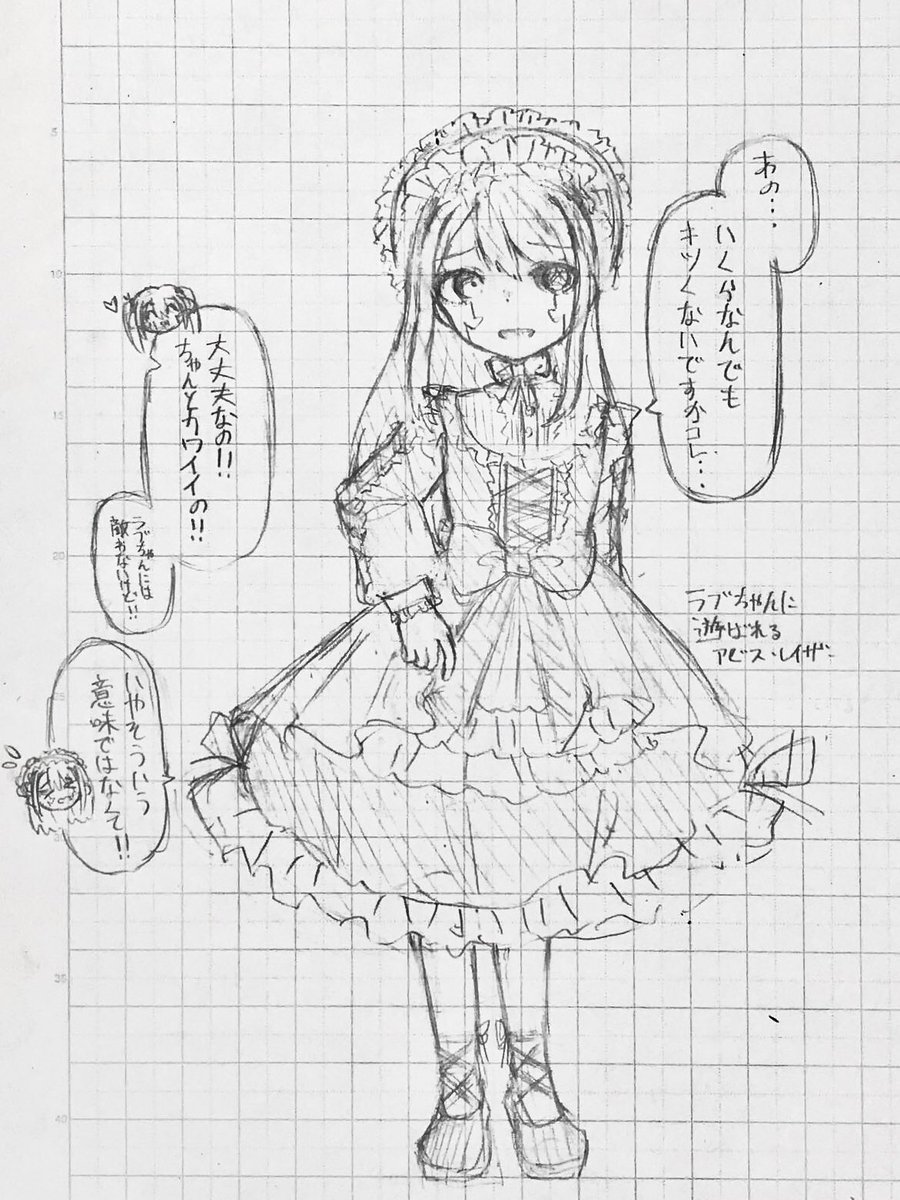 あの…
いくらなんでも
キツくないですかコレ…
大丈夫なの!!
ちゃんとカワイイの!!
ラブちゃんには
敵わないけど!!
いやそういう
意味ではなくて!!
ラブちゃんに
遊ばれる
アビス・レイザー
5
10
15
20
25
35
40